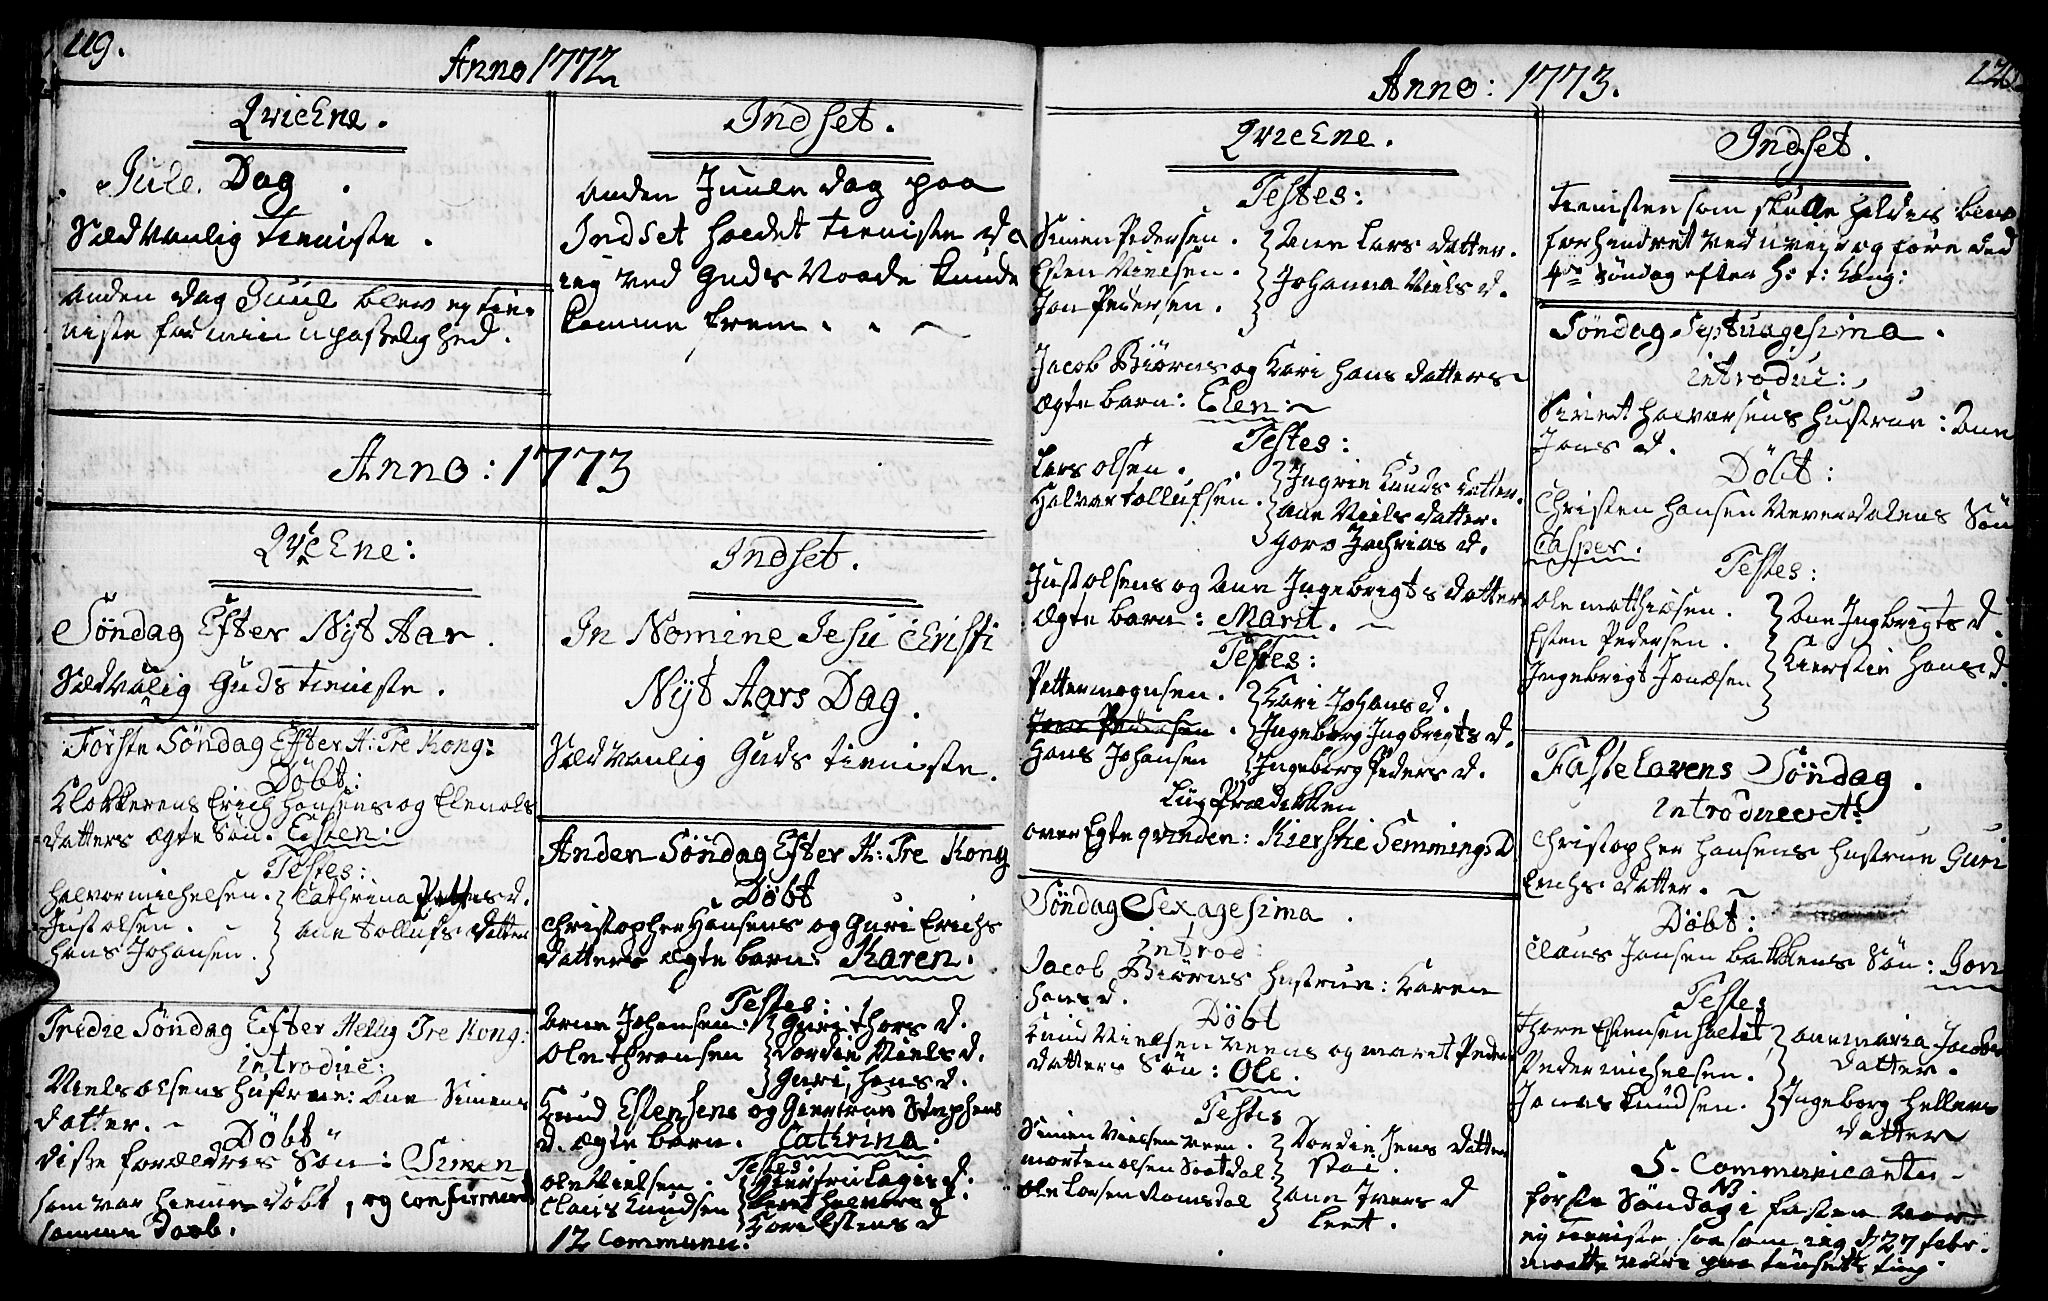 119.
Anno 1772
QvicEne.
Jule Dag.
Sædvanlig tieniste.
anden dag Juul blev ey tie-
niste for min upasselighed.
Indset.
anden Juule dag paa
Indset holdet tieniste da
ieg ved Guds Naade kunde
komme frem.
Anno: 1773
QvicEne:
Søndag Efter Nyt Aar.
Sædvanlig Guds tieniste.
Første Søndag Efter H: Tre Kong:
Døbt:
Klokkerens Erich Hansens og Elen ols
datters ægte Søn. Esten.
Testes:
Halvor michelsen. Cathrina d.
Just olsen. ane tollufs datter
Hans Johansen.
Tredie Søndag Efter Hellig Tre Kong:
introduc:
Niels olsens Hustrue: Ane Simens
datter.
Døbt
disse forældres Søn: Simen
som var hiemme døbt, og confirmert
samme Daab.
Indset.
In Nomine Jesu Christi
Nyt Aars Dag.
Sædvanlig Guds tieniste.
Anden Søndag Efter H: Tre Kong
Døbt
Christopher Hansens og Guri Erichs
datters ægte barn: Karen.
Testes:
Arne Johansen. Guri thors d.
Ole thronsen Dordie Niels d.
Guri Hans d.
Knud Estensens og Giertrue Stephens
d. ægte barn. Cathrina.
Testes
Ole Nielsen. d.
Claus Knudsen Beret Halvors d.
Kari Estens d
12 Communic.
Anno: 1773.
QvicEne.
Testes:
Simen Pedersen. Ane Lars datter.
Esten Nielsen. Johanna Niels d.
Jon Pedersen.
Jacob Biørns og Kari Hans datters
ægte barn: Elen.
Testes:
Lars olsen. Ingrie Knuds datter.
Halvor tollufsen. ane Niels datter.
Goro Zachrias d.
Just olsens og Ane Ingebrigts datter
ægte barn: Marit.
Testes:
Petter mognsen. Kari Johans d.
Jon Pedersen. Ingeborg Ingbrigts d.
Hans Johansen Ingeborg Peders d.
Liig Prædikken
over Egte qvinden: Kierstie Semmings D
Søndag Sexagesima.
introd:
Jacob Biørns Hustrue: Karen
Hans d.
Døbt
Knud Nielsen Veens og marit Peders
datters Søn: Ole.
Testes
Simen Nielsen Veen. Dordie Jens datter
morten olsen Saatdal Stai.
Ole Larsen Ramsdal ane Ivers d
Leet.
120
Indset.
tienisten som skulle holdes blev
forhindret ved uveir og føre ded
4de Søndag efter H: t: Kong:
Søndag Septuagesima.
introduc:
Sivert Halvorsens Hustrue: Ane
Jons d.
Døbt:
Christen Hansen Neverdalens Søn
Casper.
Testes:
Ole matthiesen. Ane Ingbrigts d.
Esten Pedersen. Kierstie Hans d.
Ingebrigt Jonæsen
Fastelavens Søndag.
introduceret:
Christopher Hansens Hustrue Guri
Erichs datter.
Døbt:
Claus Jonsen bakkens Søn: Jon
Testes
thore Estensen Saltet, ane maria Jacobs
Peder michelsen. datter.
Jonas Knudsen. Ingeborg Hellers
datter
5. Communicanter
NB
første Søndag i fasten var
ey tieniste, saa som ieg d 27 febr.
maatte være paa tønsetts ting.